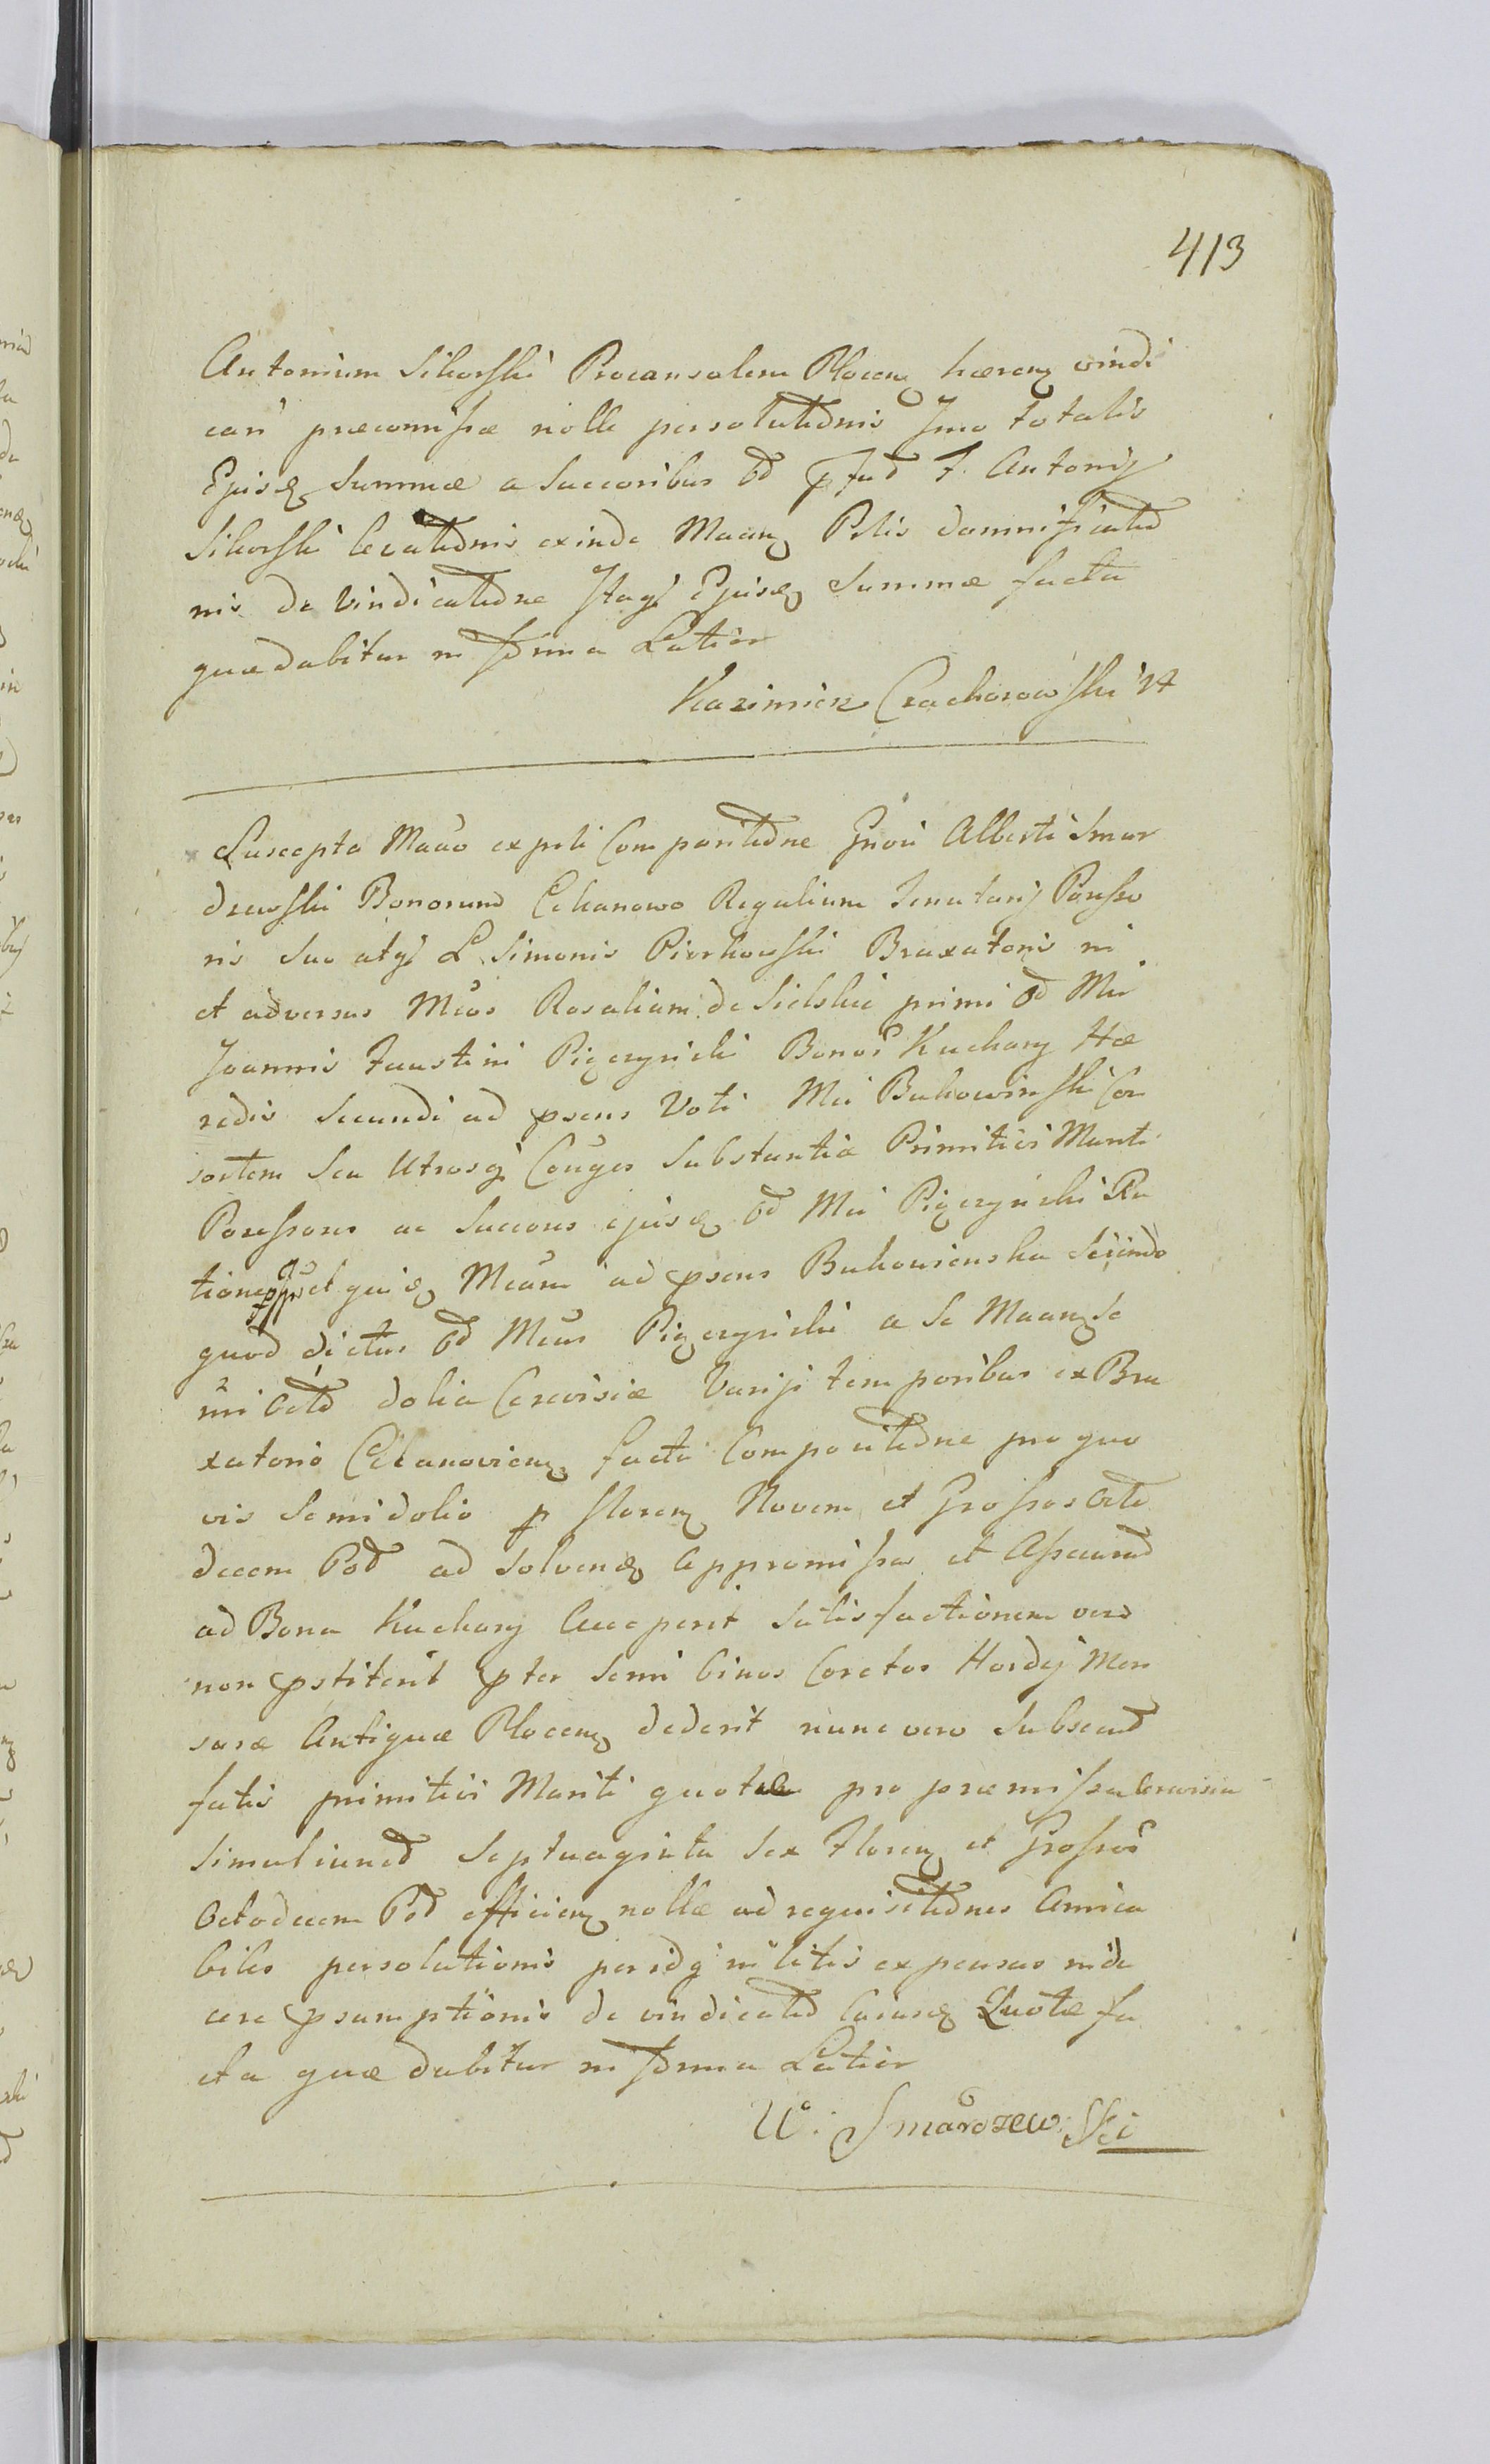 413
Antonium Sikorski Proconsulem Plocen hæren vindi
cari præconissæ nolle persolutionis Imo totalis
Ejusq Summæ a Succoribus od
Sikorski levationis exinde Maan Pelis damnificatio
nis de Vindicatione Itaq Ejusq Summæ facta
quæ dabitur in forma Latior
Kazimierz Czachorowski
Suscepta Mauo ex prli Comparitione Gnoi Alberti Smar
dzewski Bonorum Cekanowo Regalium Tenutarij Posseso
ris Suo atq L Simonis Piorkowski Braxatoris ni
et adversus Mcos Rosaliam de Sielskie primi od Mci
Joannis Faustini Pigczynski Bonor Kuchary Hæ
redis Secundi ad psens Voti Mci Bukowinski Con
sortem Seu Utrosq Conges Substantiæ Primitivi Mariti
Possessores ac Succores ejusq od Mci Pigczynski Ra
tione et quidq Mcam ad psens Bukowienska Seiindo
quod dictus od Mcus Pigczynski a Se Maan Se
mi Octo dolia Cerevisiæ Varijs temporibus ex Bra
xatorio Cekanovien facta Compositione pro quo
vis Semidolio p floren Novem et Grossos Octo
decem Pol ad Solvend appromissa et Assecurad
ad Bona Kuchary Acceperit Satisfactionem vero
non pstiterit pter Semi binos Coretos Hordej Men
suræ Antiquæ Plocen dederit nunc vero Subsecud
fatis primitivi Mariti quotæ pro præmissa Cerevisia
Simul iunct Septuaginta Sex Floren et Grossor
Octodecem Pol efficien nollæ ad requisitiones Amica
biles persolutionis peridq in litis expensas indu
cere psumptionis de vindicatio Cuiusq Quotæ fa
cta quæ dabitur in forma Latior
W. Smardzewski